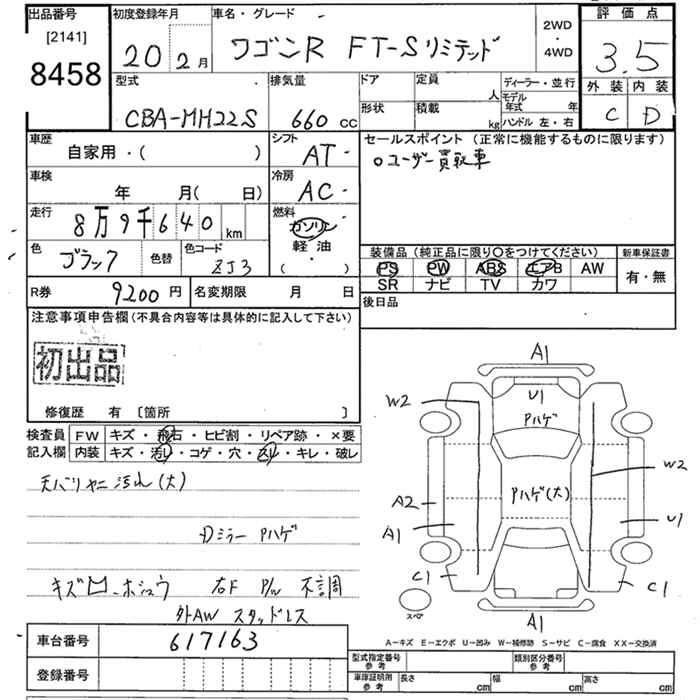 出品番号 [2141] 8458
初度登録年月 20 2月
車名・グレード ワゴンR FT-Sリミテッド
2WD ・ 4WD
評価点 3.5
外装 内装
C D
型式 CBA-MH22S
排気量 660 cc
ドア 定員 人
形状 積載 kg
ディーラー・並行
モデル年式 年
ハンドル 左・右
車歴 自家用・( )
シフト AT
セールスポイント (正常に機能するものに限ります)
○ユーザー買取車
車検 年 月( 日)
冷房 AC
走行 8万9千640 km
燃料 ガソリン
軽油
( ・ )
色 ブラック 色替 色コード ZJ3
装備品 (純正品に限り○をつけてください)
新車保証書
PS PW ABS エアB AW
SR ナビ TV カワ
有・無
R券 9200円 名変期限 月 日
後日品
注意事項申告欄 (不具合内容等は具体的に記入して下さい)
初出品
修復歴 有 〔箇所 〕
検査員 FW キズ・飛石・ヒビ割・リペア跡・×要
記入欄 内装 キズ・汚レ・コゲ・穴・スレ・キレ・破レ
天バリヤニ汚れ(大)
Dミラー Pハゲ
右F P/W 不調
外AW スタッドレス
A1
U1
W2
Pハゲ
W2
A2
Pハゲ(大)
A1
U1
C1
C1
スペア
A1
A−キズ E−エクボ U−凹み W−補修跡 S−サビ C−腐食 XX−交換済
車台番号 617163
登録番号
型式指定番号 参考
類別区分番号 参考
車庫証明用 参考 長さ cm 幅 cm 高さ cm